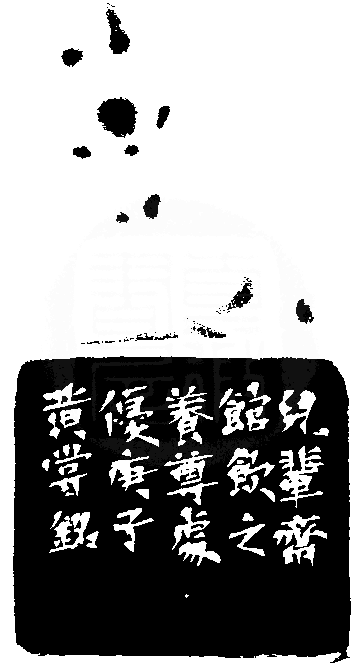 兒輩齋
館飲之
養尊處
優庚子
黃嘗銘